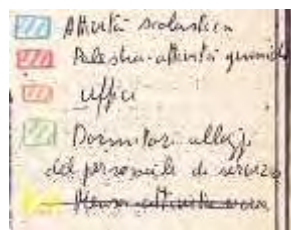 Attività scolastica
Palestra-attività ginnich
Uffici
Dormitori alloggi
del personale di servizio
Mensa attività